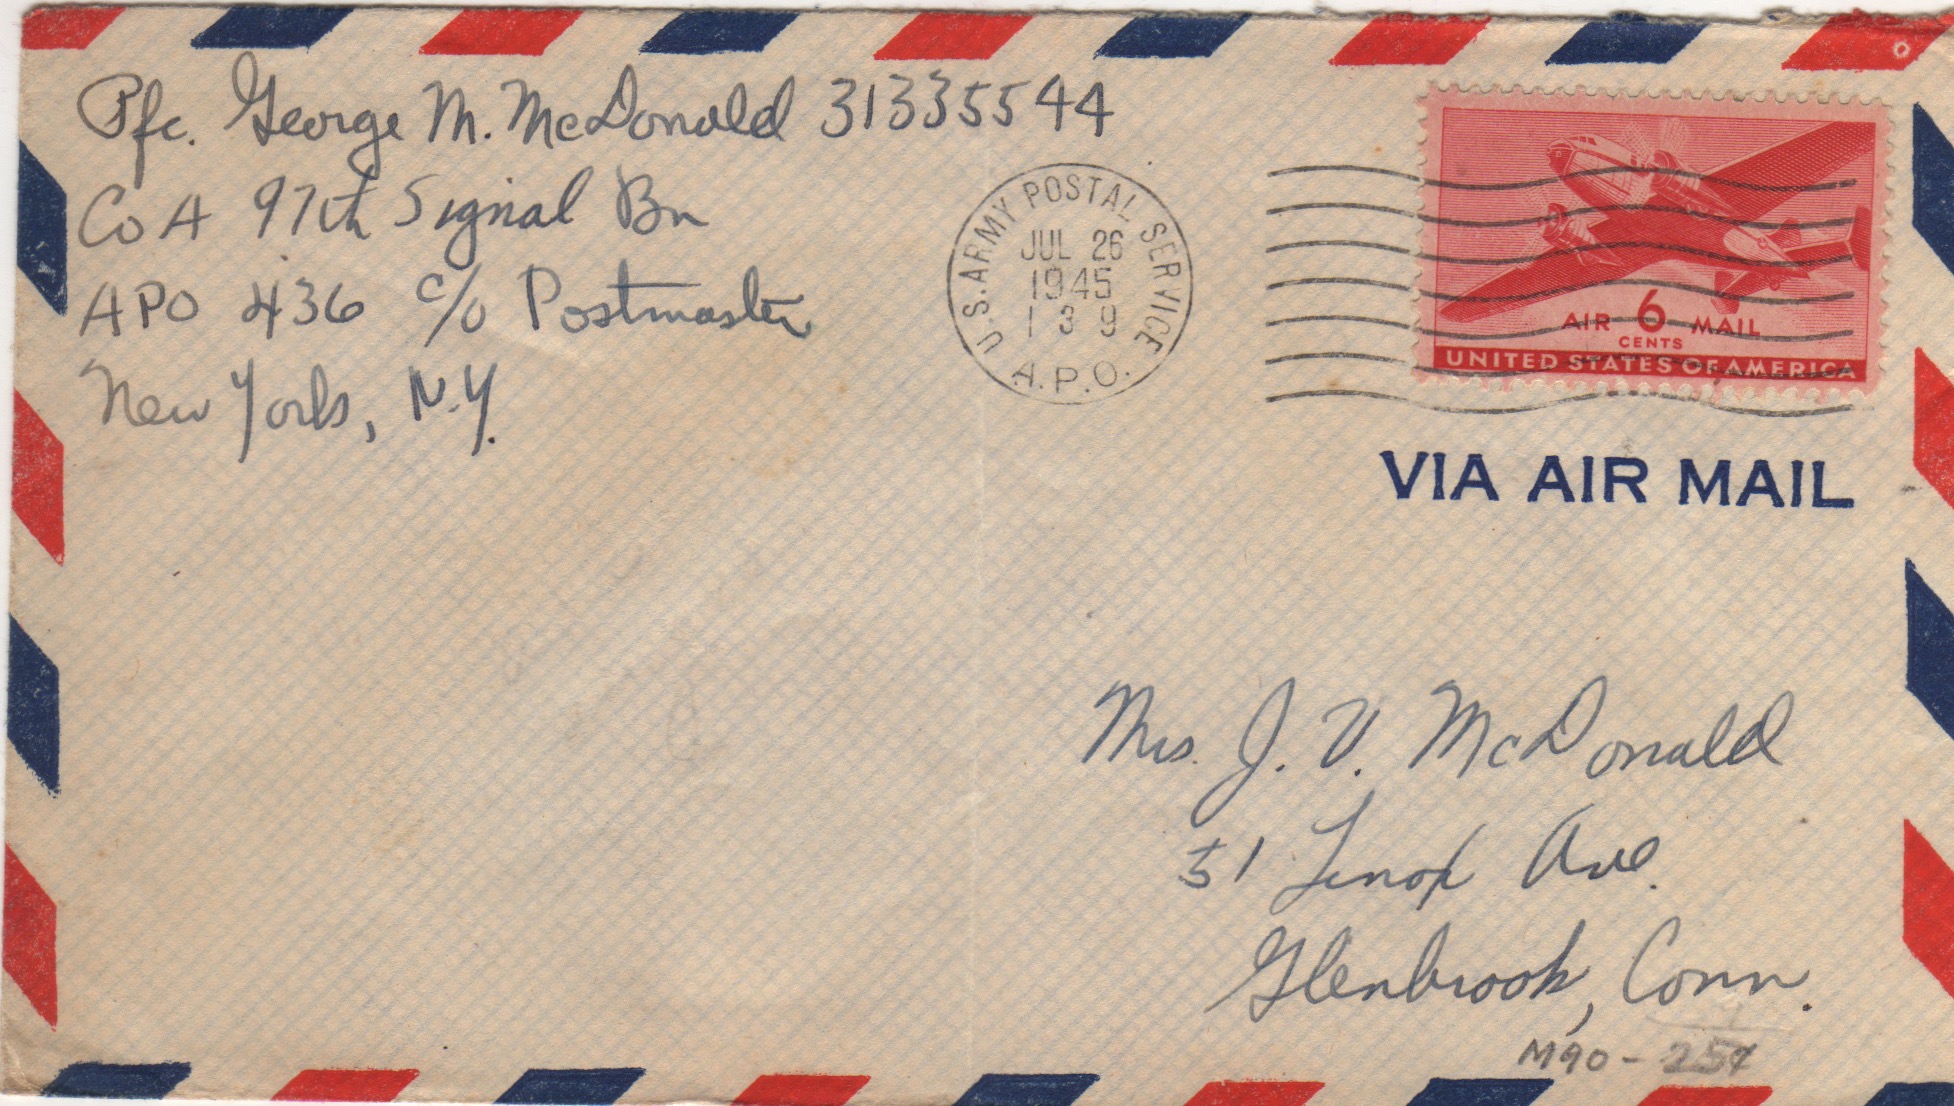 Pfc. George M. McDonald 31335544
Co A 97th Signal Bn
APO 436 c/o Postmaster
New York, N.Y.
U.S. ARMY POSTAL SERVICE
JUL 26
1945
1 3 9
A.P.O.
AIR 6 MAIL
CENTS
UNITED STATES OF AMERICA
VIA AIR MAIL
Mrs. J. V. McDonald
51 Lenox Ave.
Glenbrook, Conn.
M90 - 25¢